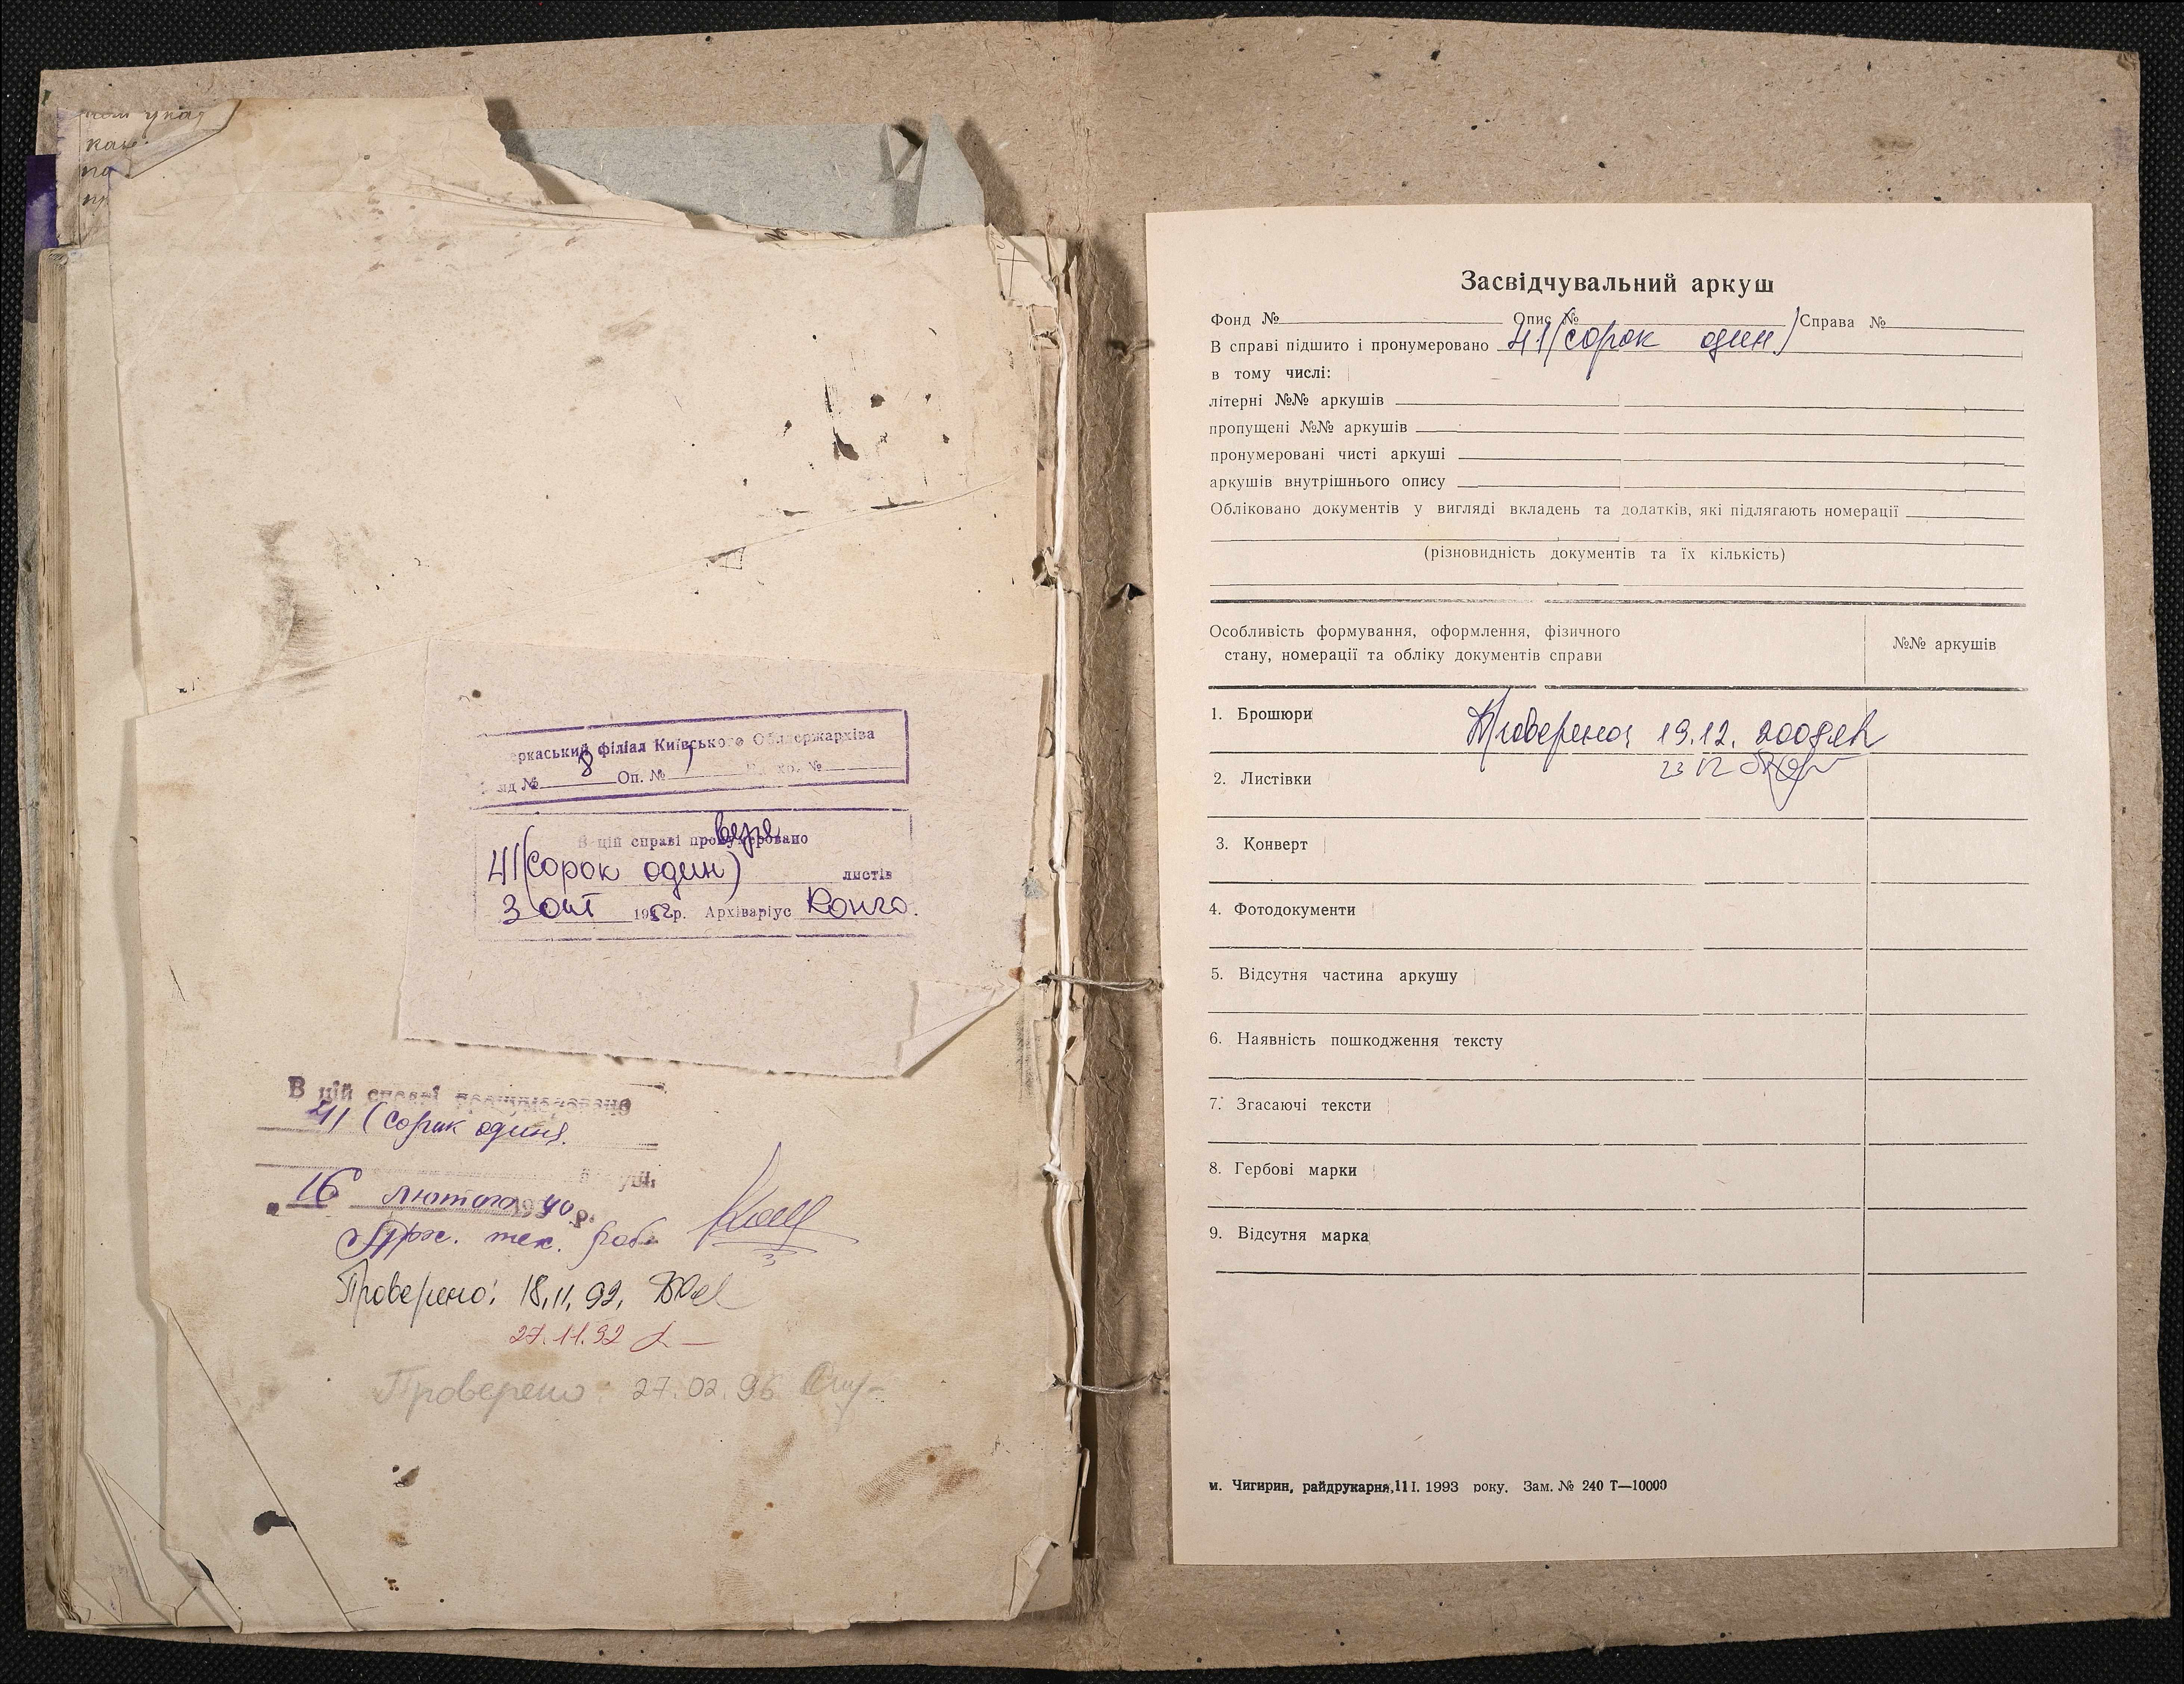 кон
по
еркаський філіал Київського Облдержархіва
нд № 8 Оп. № 1 №
В цій справі пронумеровано
41 (сорок один) листів
3 окт 1952р. Архіваріус
В цій справі пронумеровано
41 (сорок один).
„16 лютого 1990 р.
тех.
Проверено: 18.11.92.
27.11.92
Проверено: 27.02.96
Засвідчувальний аркуш
Фонд № Опис № Справа №
В справі підшито і пронумеровано 41 (сорок один)
в тому числі:
літерні №№ аркушів
пропущені №№ аркушів
пронумеровані чисті аркуші
аркушів внутрішнього опису
Обліковано документів у вигляді вкладень та додатків, які підлягають номерації
(різновидність документів та їх кількість)
Особливість формування, оформлення, фізичного
стану, номерації та обліку документів справи
№№ аркушів
1. Брошюри
Проверено: 19.12.
23 12
2. Листівки
3. Конверт
4. Фотодокументи
5. Відсутня частина аркушу
6. Наявність пошкодження тексту
7. Згасаючі тексти
8. Гербові марки
9. Відсутня марка
м. Чигирин, райдрукарня, 11 I. 1993 року. Зам. № 240 Т—10000